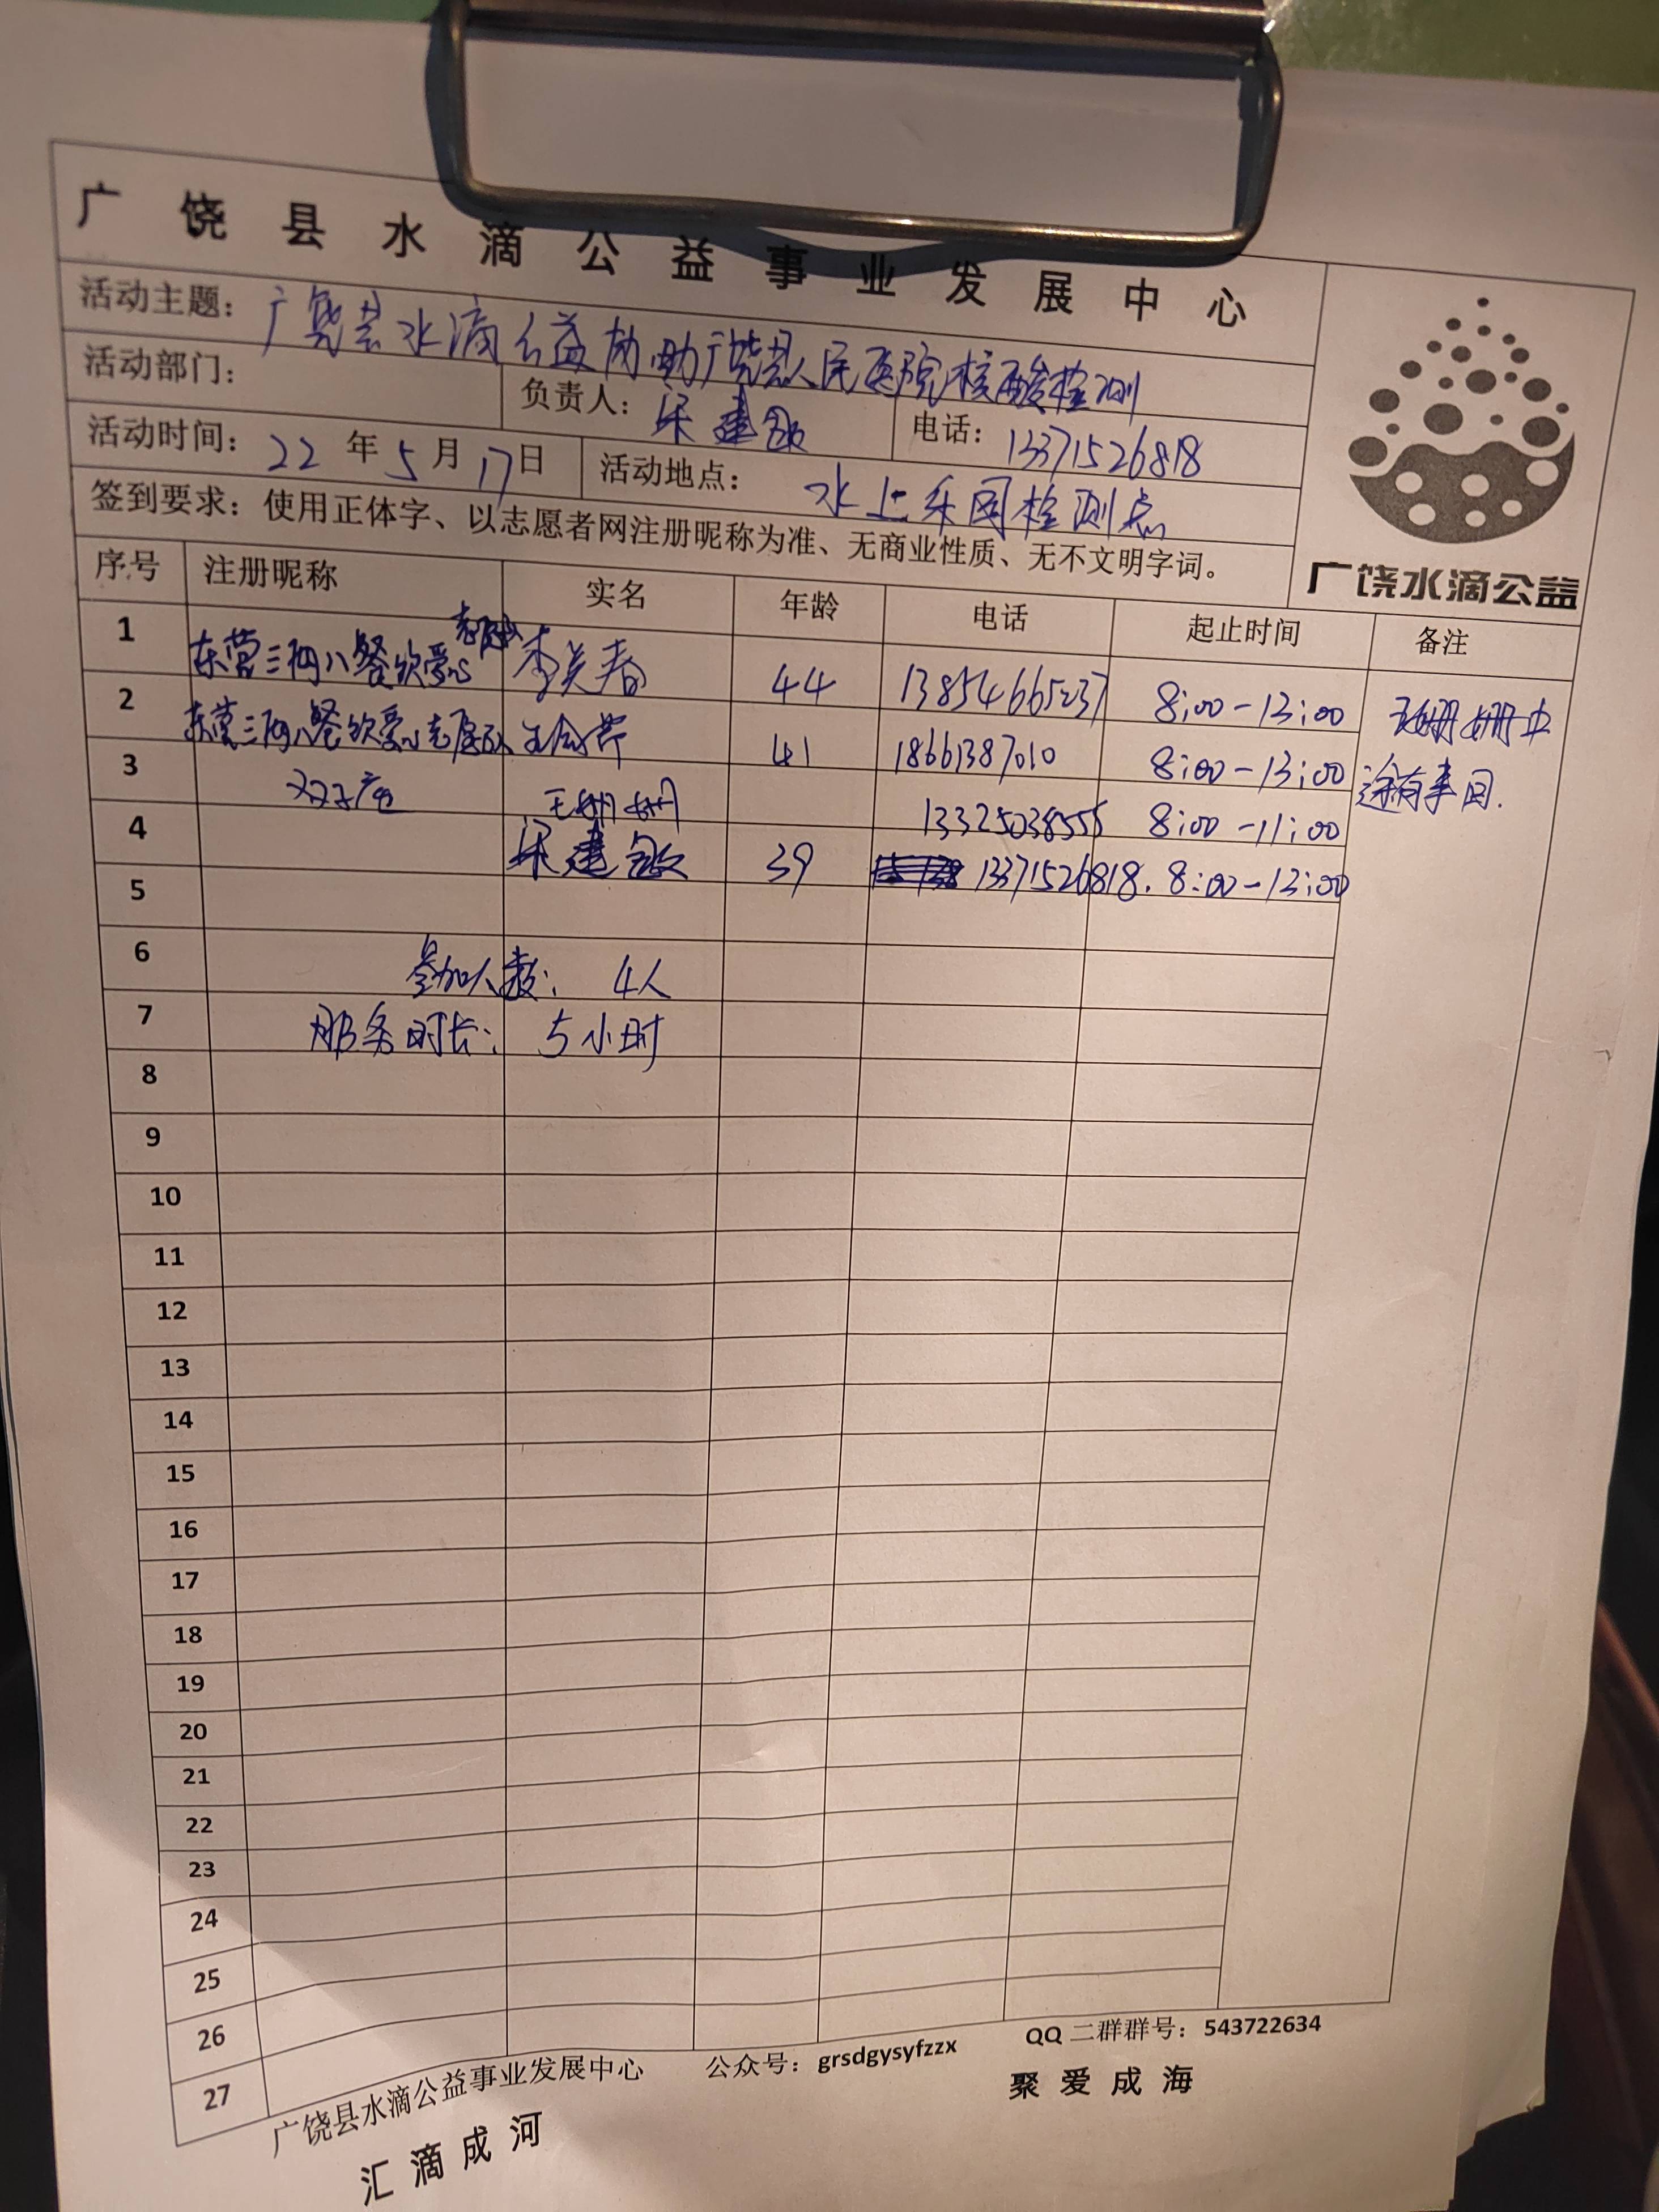 广饶县水滴公益事业发展中心
活动主题：广饶县水滴公益协助广饶县人民医院核酸检测
活动部门： 负责人：梁建敏 电话：13371526818
活动时间：22年5月17日 活动地点：水上乐园检测点
签到要求：使用正体字、以志愿者网注册昵称为准、无商业性质、无不文明字词。
广饶水滴公益
序号 注册昵称 实名 年龄 电话 起止时间 备注
1 东营三两八餐饮爱心志愿队 李关春 44 13854665237 8:00-13:00 王姗姗中
2 东营三两八餐饮爱心志愿队 41 18661387010 8:00-13:00 途有事回.
3 双子座 王姗姗 13325038555 8:00-11:00
4 梁建敏 39 13371526818. 8:00-13:00
5
6 参加人数： 4人
7 服务时长： 5小时
8
9
10
11
12
13
14
15
16
17
18
19
20
21
22
23
24
25
26
27
广饶县水滴公益事业发展中心 公众号：grsdgysyfzzx QQ 二群群号：543722634
汇滴成河 聚爱成海